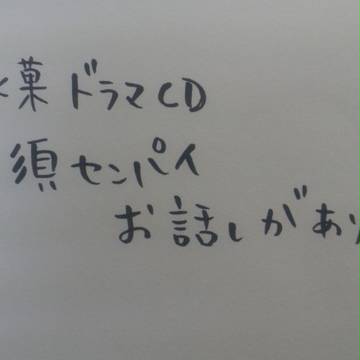 菓ドラマCD
須センパイ
お話しがあり